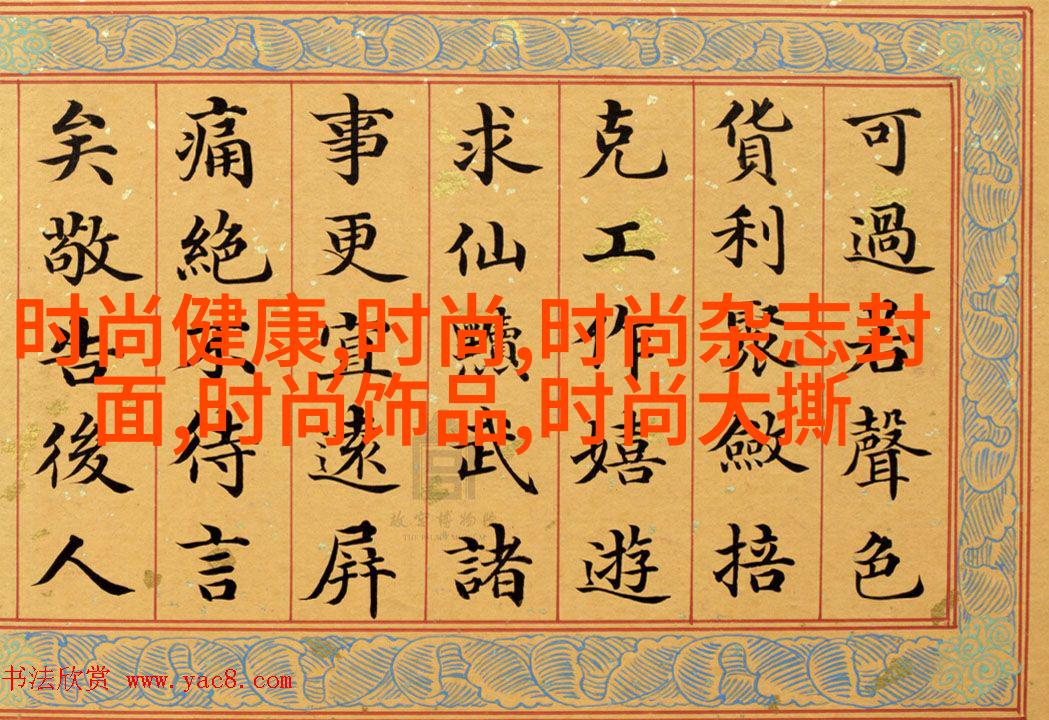 可過若聲色
貨利聚斂掊
克工作嬉遊
求仙黷武諸
事更宜遠屏
痛絕待言
矣敬告後人
时尚健康,时尚,时尚杂志封
面,时尚饰品,时尚大撕
故宫博物院
THE PALACE MUSEUM
书法欣赏 www.yac8.com